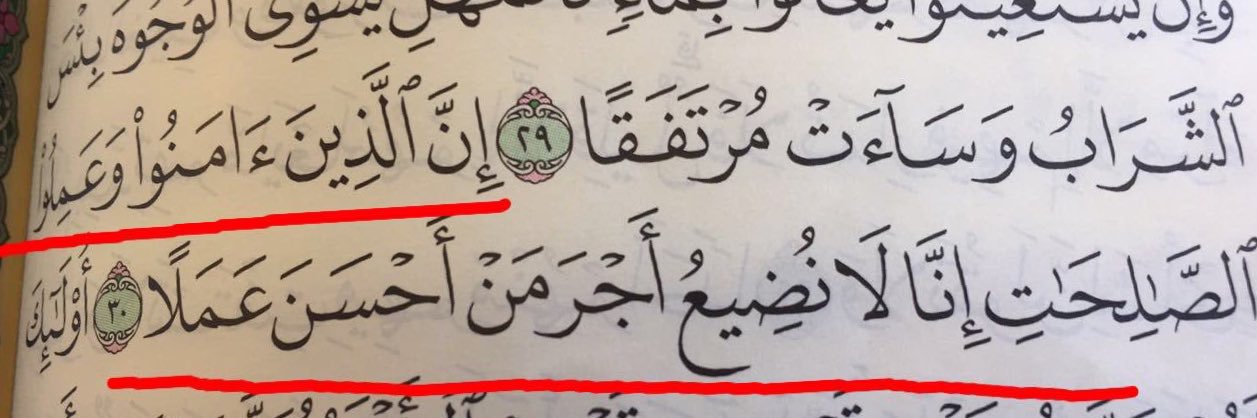 وَإِن يَسْتَغِيثُوا۟ يُغَاثُوا۟ بِمَآءٍ كَٱلْمُهْلِ يَشْوِى ٱلْوُجُوهَ بِئْسَ
ٱلشَّرَابُ وَسَآءَتْ مُرْتَفَقًا ٢٩ إِنَّ ٱلَّذِينَ ءَامَنُوا۟ وَعَمِلُوا۟
ٱلصَّـٰلِحَـٰتِ إِنَّا لَا نُضِيعُ أَجْرَ مَنْ أَحْسَنَ عَمَلًا ٣٠ أُو۟لَـٰٓئِكَ